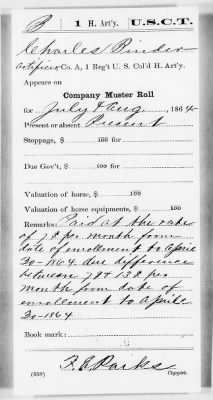 B | 1 H. Art'y. | U.S.C.T.
Charles Binder
Artificer Co. A, 1 Reg't U. S. Col'd H. Art'y.
Appears on
Company Muster Roll
for July & Aug, 1864
Present or absent Present
Stoppage, $ 100 for
Due Gov't, $ 100 for
Valuation of horse, $ 100
Valuation of horse equipments, $ 100
Remarks: Paid at the rate
of 7$ per month from
date of enrollment to April
30-1864. due difference
between 7$ & 13$ per
month from date of
enrollment to April
30-1864
Book mark:
F. E. Parks
(358) Copyist.